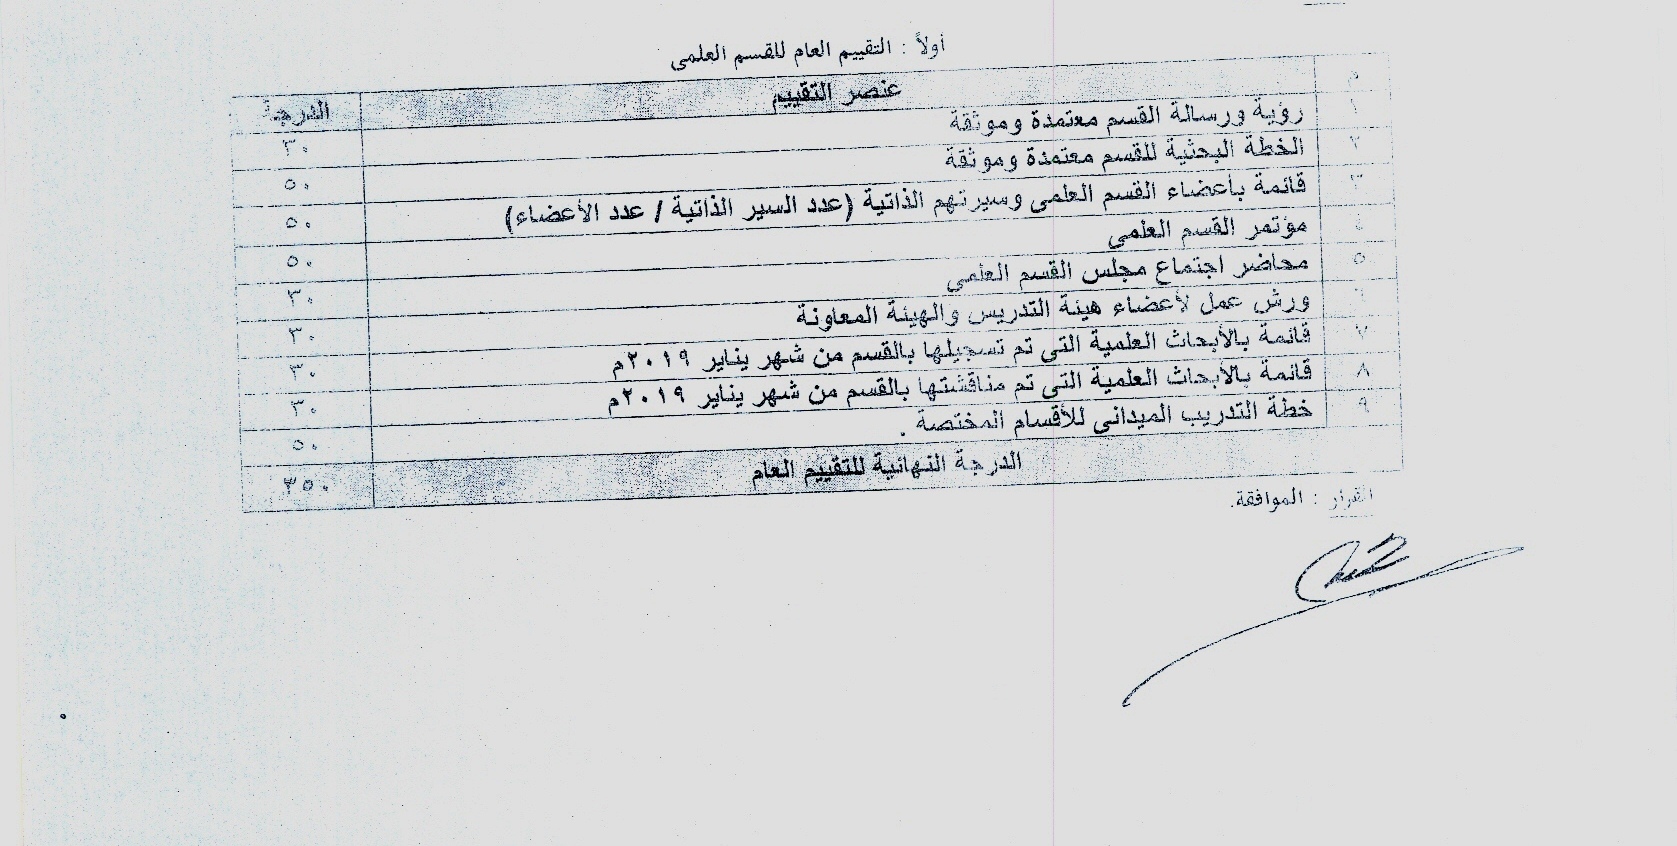 أولاً : التقييم العام للقسم العلمى
م عنصر التقييم الدرجة
١ رؤية ورسالة القسم معتمدة وموثقة ٣٠
٢ الخطة البحثية للقسم معتمدة وموثقة ٥٠
٣ قائمة بأعضاء القسم العلمى وسيرتهم الذاتية (عدد السير الذاتية / عدد الأعضاء) ٥٠
٤ مؤتمر القسم العلمى ٥٠
٥ محاضر اجتماع مجلس القسم العلمى ٣٠
٦ ورش عمل لأعضاء هيئة التدريس والهيئة المعاونة ٣٠
٧ قائمة بالأبحاث العلمية التى تم تسجيلها بالقسم من شهر يناير ٢٠١٩م ٣٠
٨ قائمة بالأبحاث العلمية التى تم مناقشتها بالقسم من شهر يناير ٢٠١٩م ٣٠
٩ خطة التدريب الميدانى للأقسام المختصة . ٥٠
الدرجة النهائية للتقييم العام ٣٥٠
القرار : الموافقة.